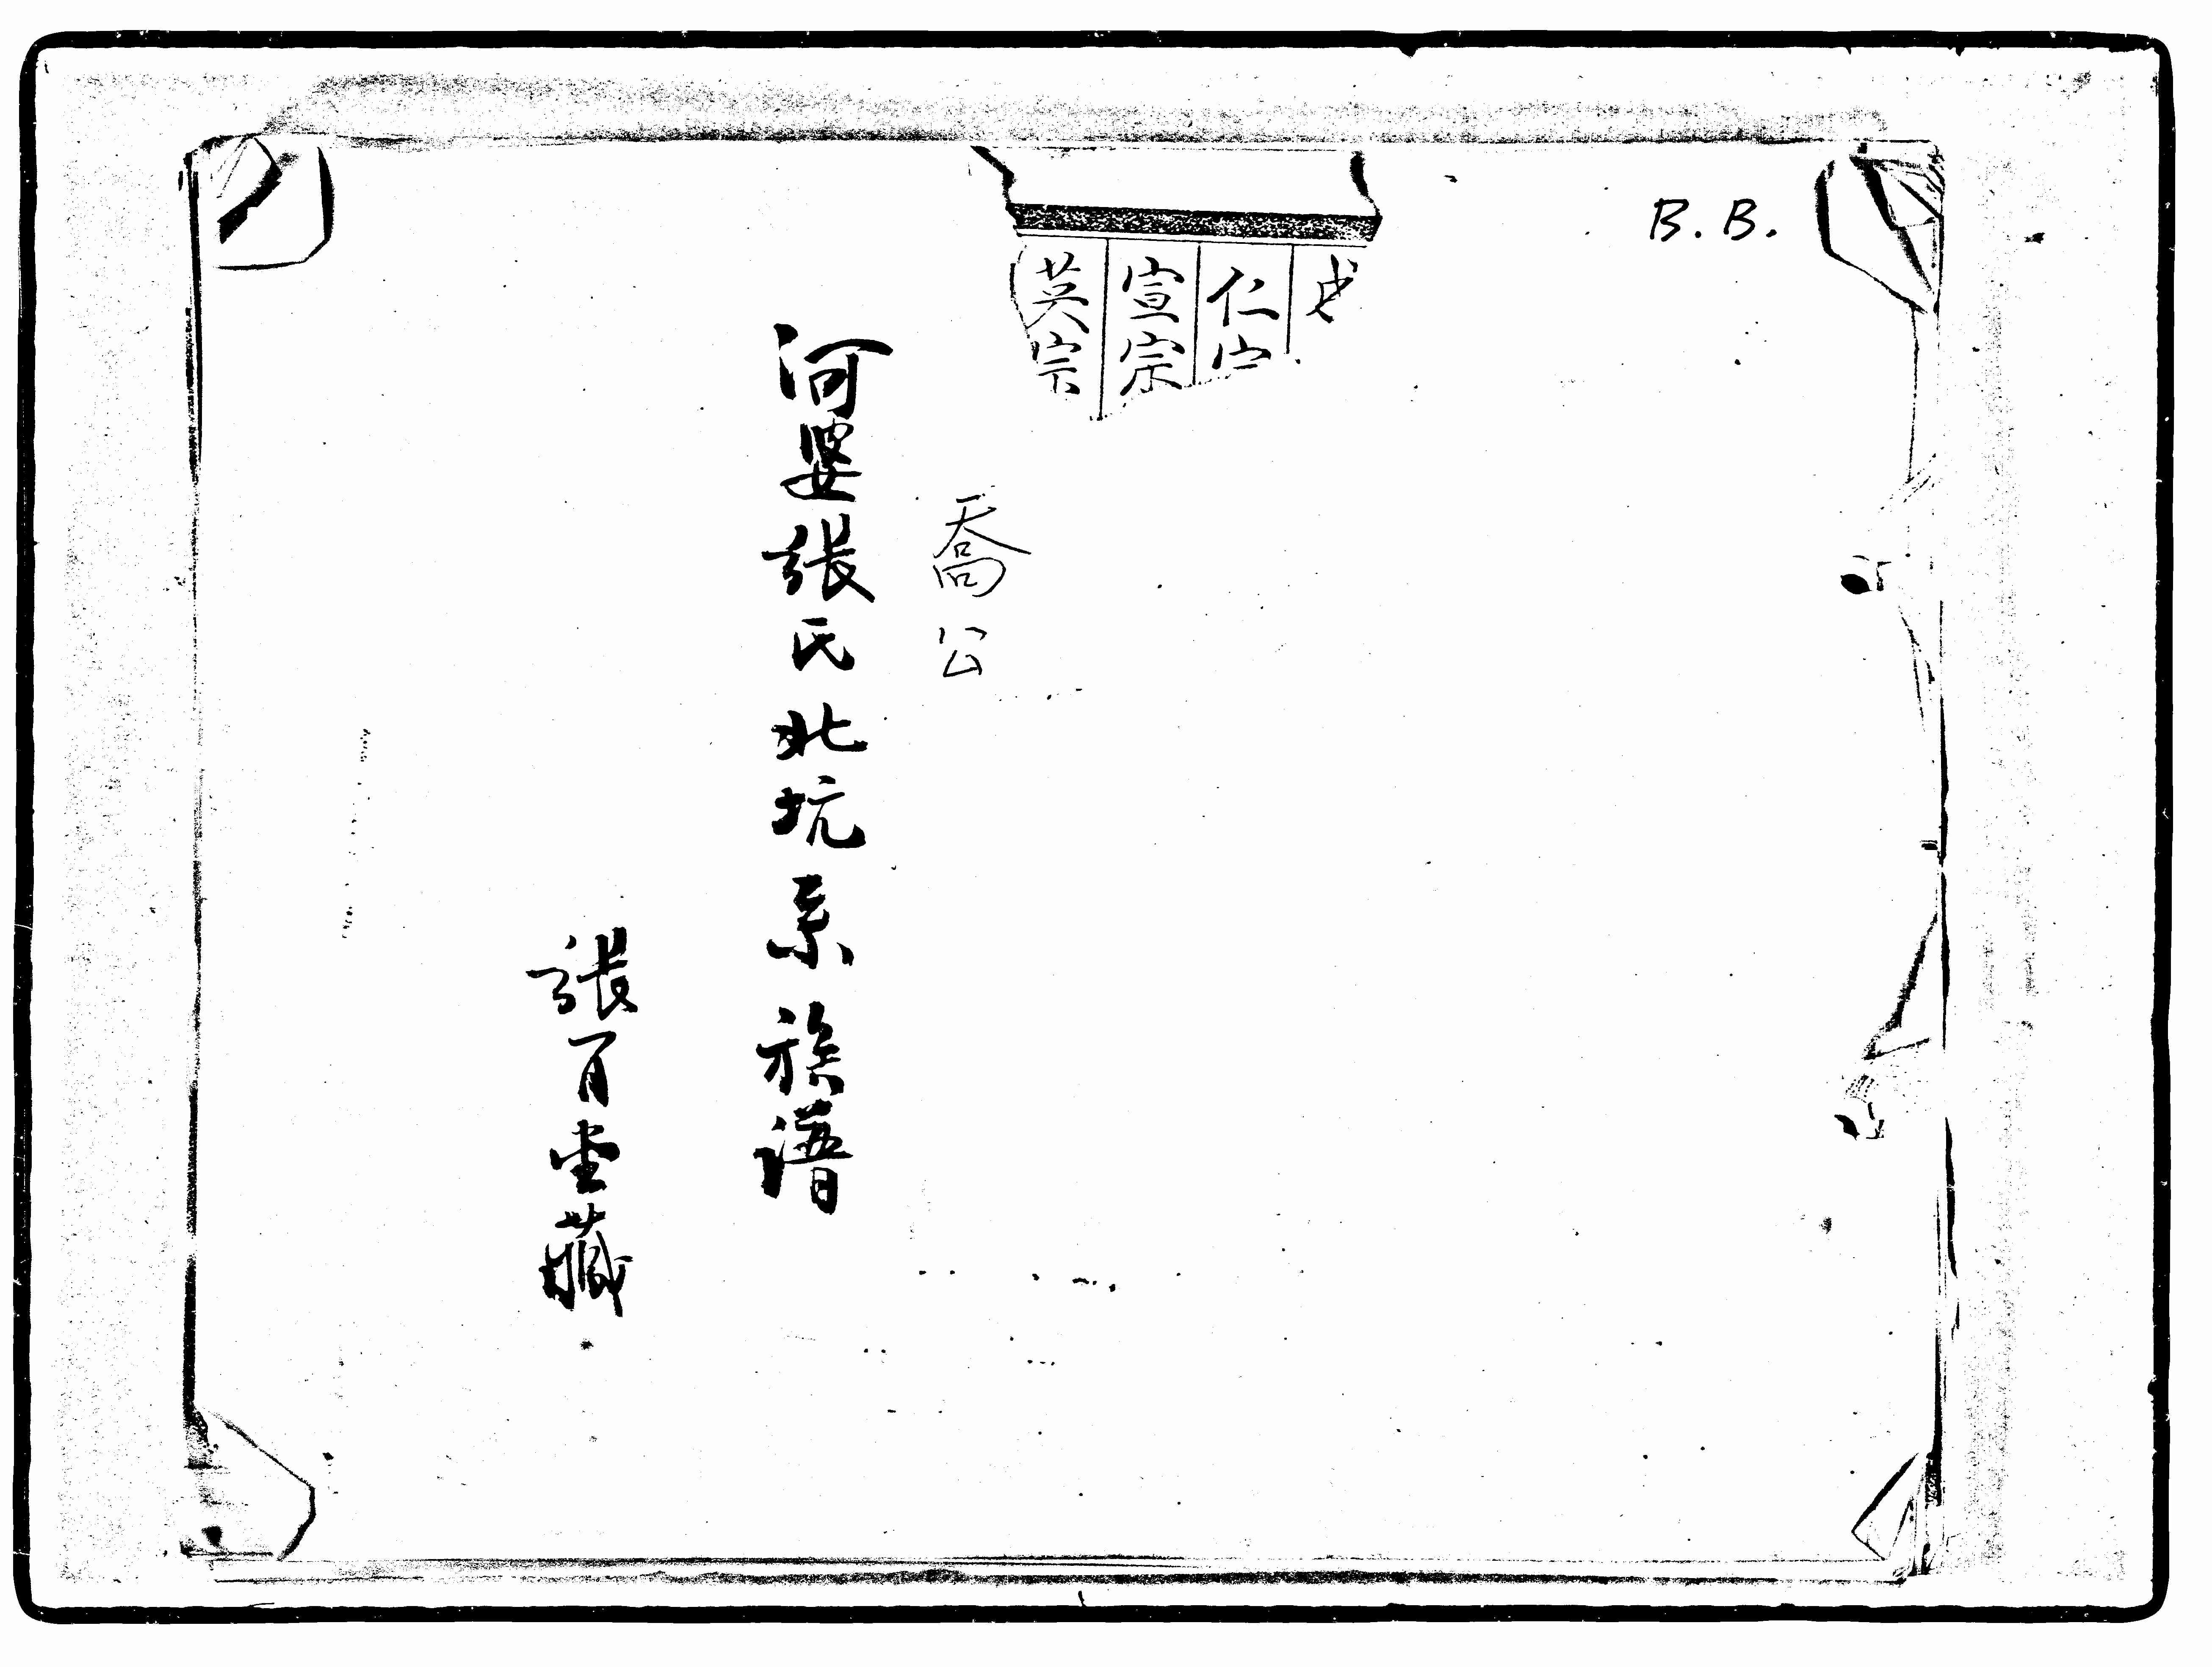 B. B.
仁宗
宣宗
英宗
喬公
河婆張氏北坑系族譜
張百堂藏